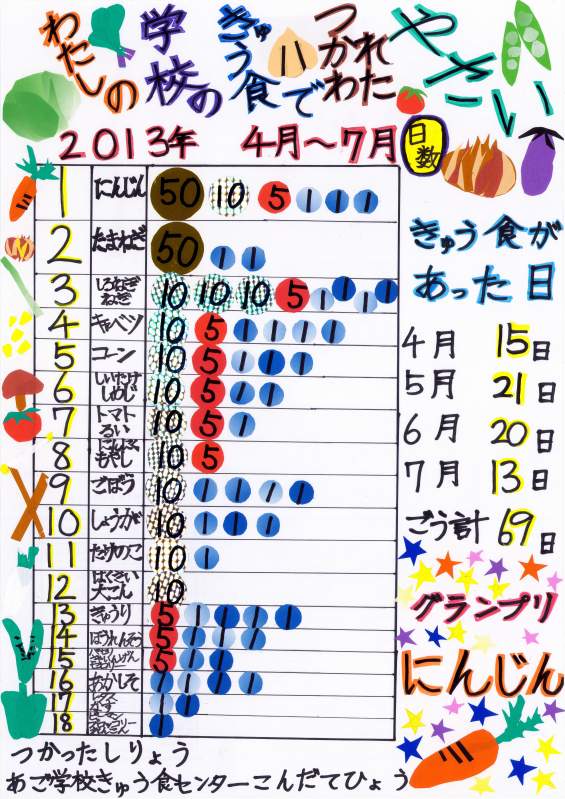 わたしの学校のきゅう食でつかわれたやさい
2013年 4月~7月 日数
1 にんじん 50 10 5 1 1 1
2 たまねぎ 50 1 1
3 しろねぎ ねぎ 10 10 10 5 1 1 1 1
4 キャベツ 10 5 1 1 1 1
5 コーン 10 5 1 1 1
6 しいたけ しめじ 10 5 1 1
7 トマトるい 10 5 1
8 もやし 10 5
9 ごぼう 10 1 1 1 1
10 しょうが 10 1 1 1
11 たけのこ 10 1
12 はくさい 大こん 10
13 きゅうり 5 1 1 1 1
14 ほうれんそう 5 1 1 1
15 5 1 1
16 あかしそ 1 1 1 1
17 1 1
18 1
きゅう食が
あった日
4月 15日
5月 21日
6月 20日
7月 13日
ごう計 69日
グランプリ
にんじん
つかったしりょう
あご学校きゅう食センターこんだてひょう